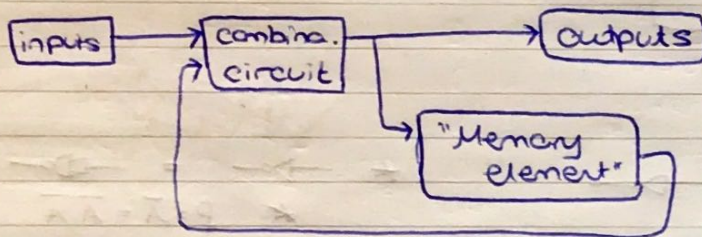 inputs
combina.
circuit
outputs
"Memory
element"